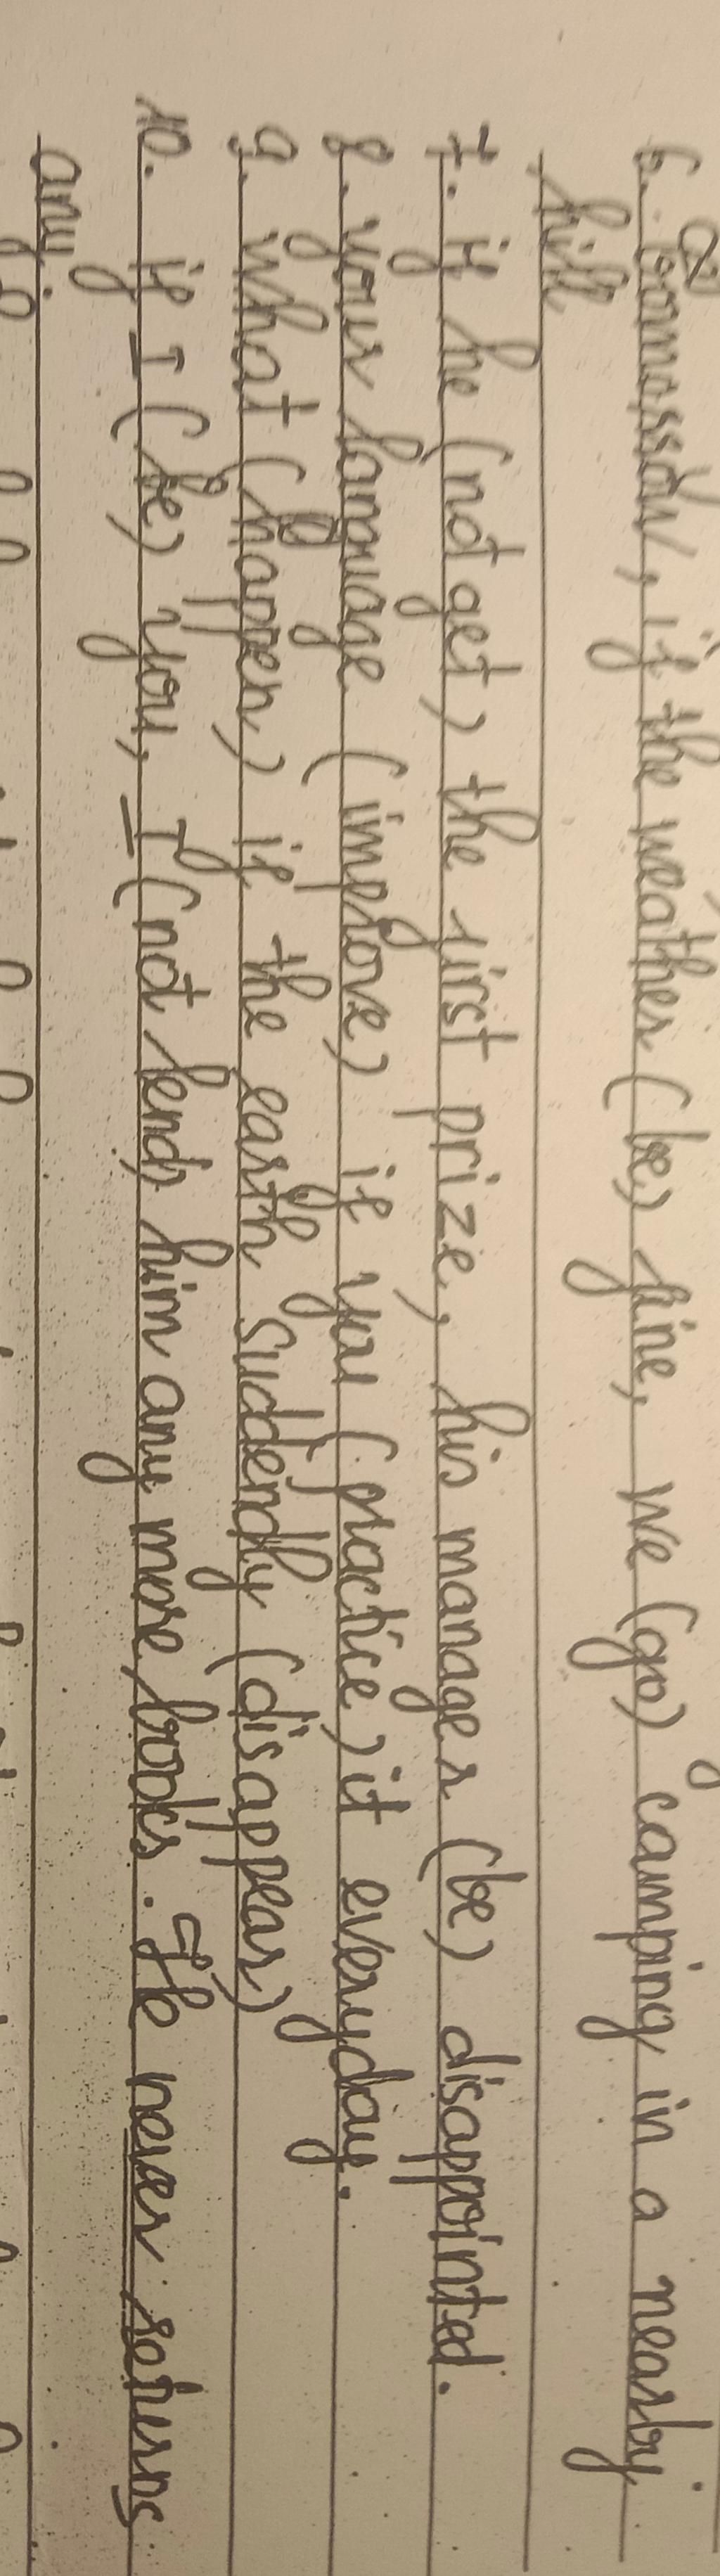 6. Tommorow, if the weather (be) fine, we (go) camping in a nearby
hill
7. if he (not get) the first prize, his manager (be) disappointed.
8. your language (improve) if you (practice) it everyday.
9. what (happen) if the earth suddenly (disappear)
10. if I (be) you, I (not lend) him any more books. He never returns
any.